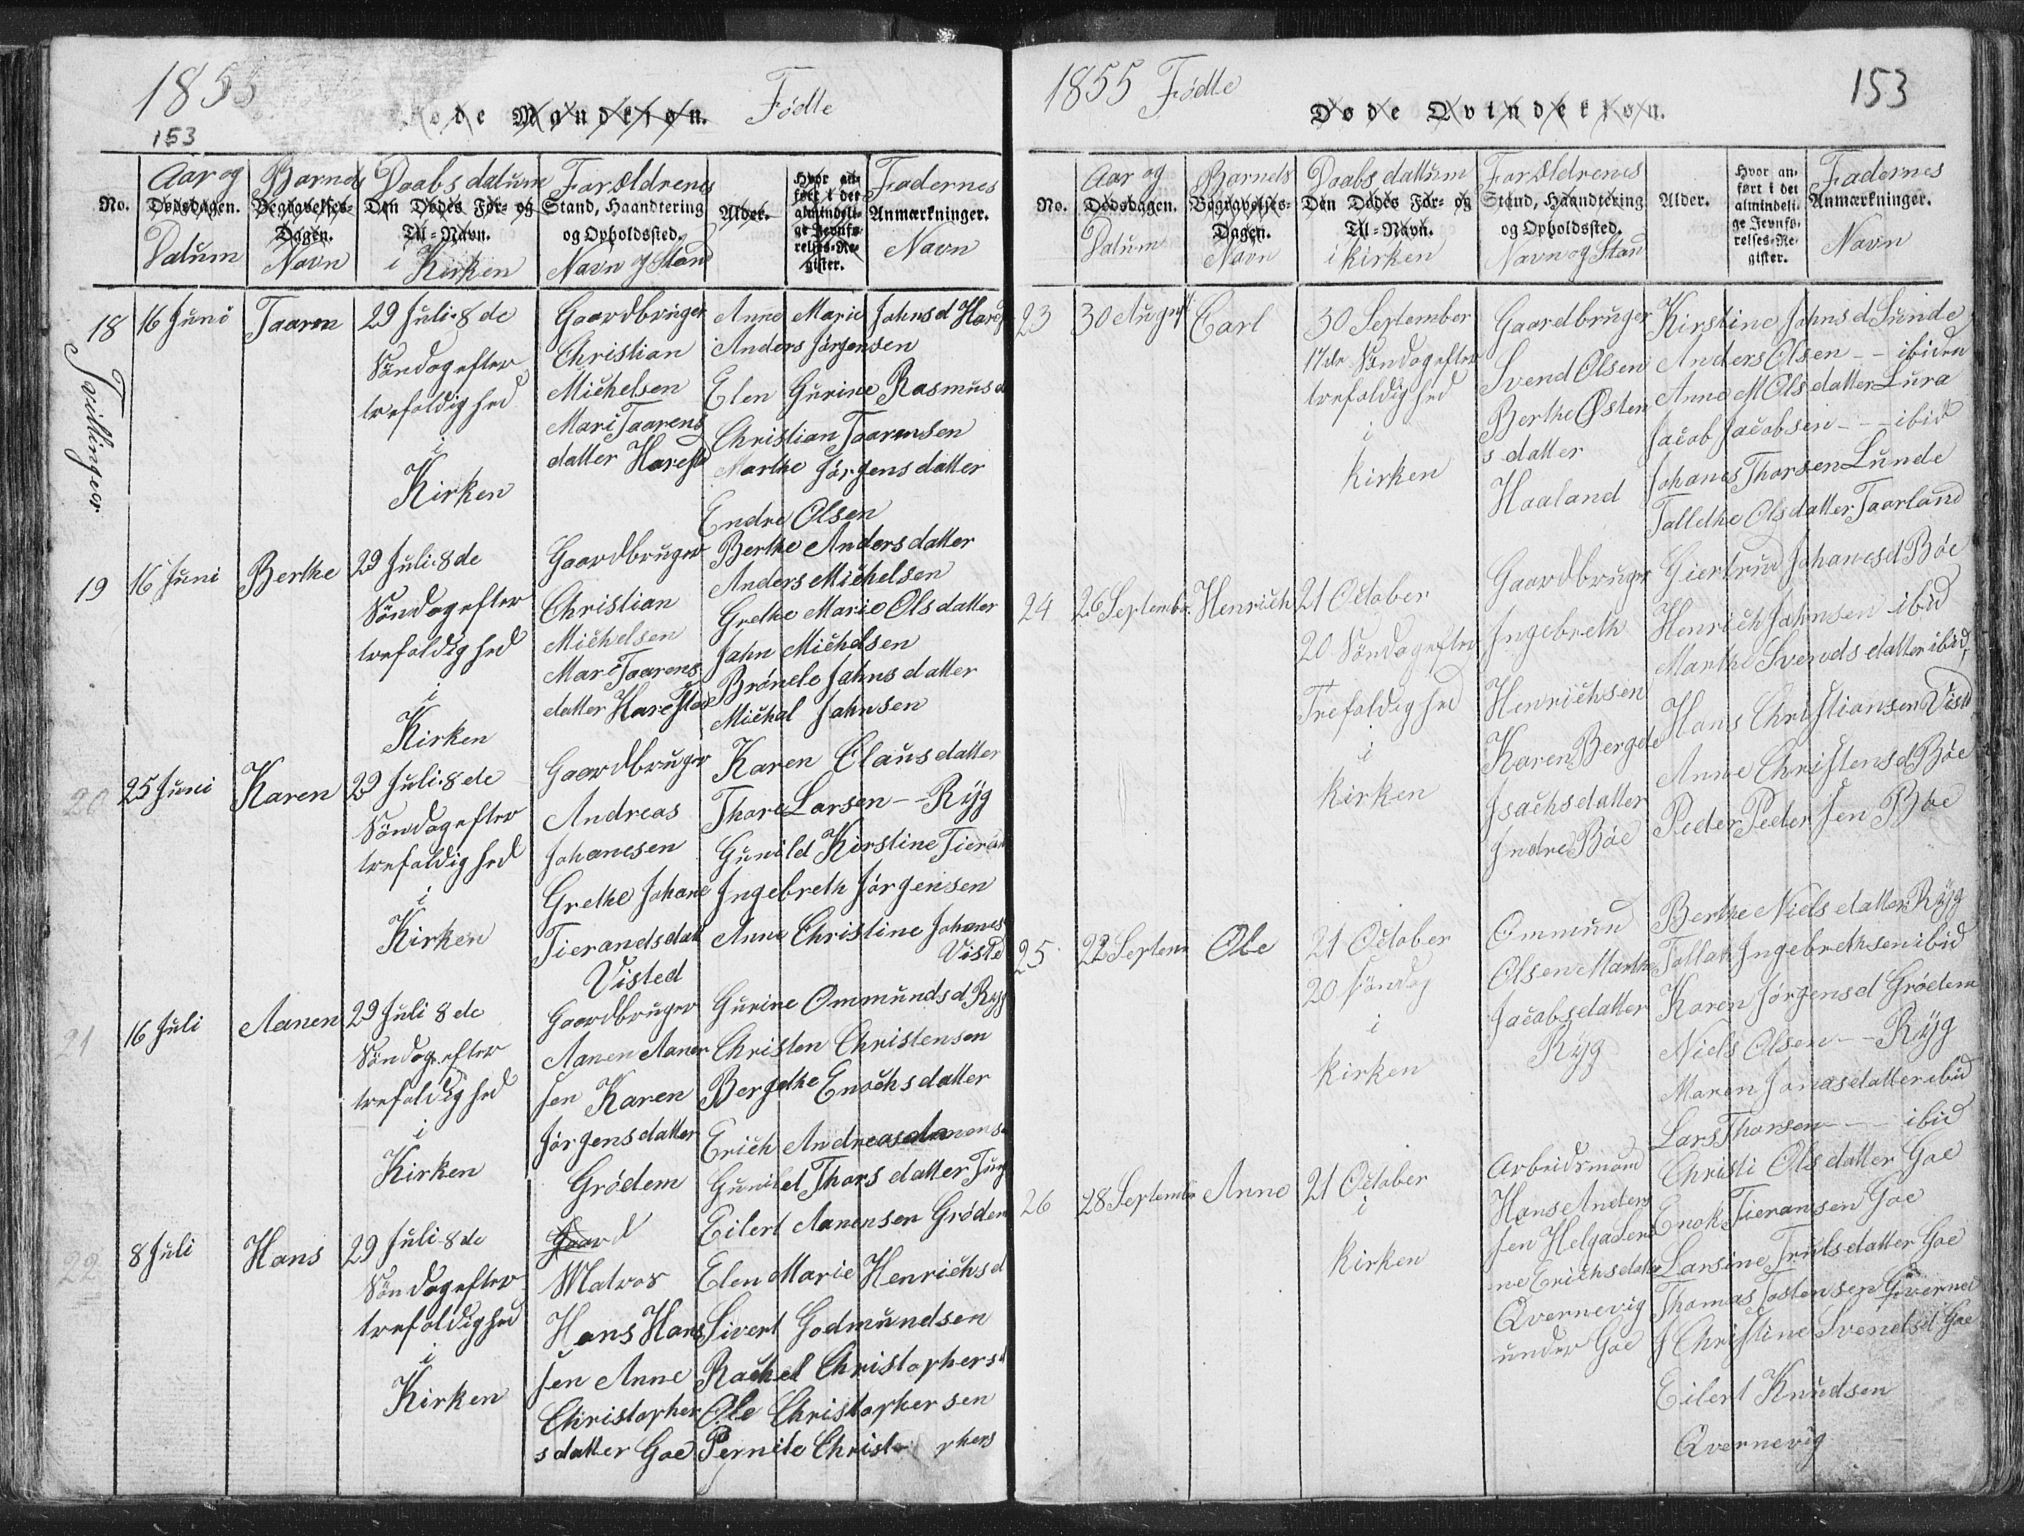 1855
153
Døde Mandkiøn. Fødte
No.
Aar og
Dødsdagen.
Datum
Barnets
Begravelses-
Dagen.
Navn
Daabsdatum
Den Dødes For- og
Til-Navn.
i Kirken
Forældrenes
Stand, Haandtering
og Opholdssted.
Navn og Stand
Alder.
Hvor an-
ført i det
almindeli-
ge Jevnfø-
relses-Re-
gister.
Fadernes
Anmærkninger.
Navn
18
Tvillinger
16 Juni
Taaren
29 Juli 8de
Søndag efter
trefoldighed
i
Kirken
Gaardbruger
Christian
Michelsen
Mari Taarens
datter Harestd
Anne Marie Jahnsd Harest
Anders Jørgensen
Elen Gurine Rasmusd
Christian Taarensen
Marthe Jørgensdatter
Endre Olsen
19
16 Juni
Berthe
29 Juli 8de
Søndag efter
trefoldighed
i
Kirken
Gaardbruger
Christian
Michelsen
Mari Taarens
datter Harestad
Berthe Andersdatter
Anders Michelsen
Grethe Marie Olsdatter
Jahn Michelsen
Brönele Jahnsdatter
Michal Jahnsen
20
25 Juni
Karen
29 Juli 8de
Søndag efter
trefoldighed
i
Kirken
Gaardbruger
Andreas
Johanesen
Grethe Johane
Tierandsdat
Visted
Karen Clausdatter
Thore Larsen -- Ryg
Gunild Kirstine Tieran
Ingebreth Jørgensen
Anne Christine Johanes
Visted
21
16 Juli
Aanen
29 Juli 8de
Søndag efter
trefoldighed
i
Kirken
Gaardbruger
Aanen Aanen
sen Karen
Jørgensdatter
Grødem
Gurine Ommundsd Ryg
Christen Christensen
Bergethe Enochsdatter
Erich Andreas
Gunild Thorsdatter
Eilert Aanensen Grødem
22
8 Juli
Hans
29 Juli 8de
Søndag efter
trefoldighed
i
Kirken
Gaard
Matros
Hans Hans
sen Anne
Christopher
sdatter Goe
Elen Marie Henrichsd
Sivert Godmundsen
Rachel Christophersd
Ole Christophersen
Pernile Christophers
1855 Fødte
153
Døde Qvindekiøn.
No.
Aar og
Dødsdagen.
Datum
Barnets
Begravelses-
Dagen.
Navn
Daabsdattum
Den Dødes For- og
Til-Navn.
i kirken
Forældrenes
Stand, Haandtering
og Opholdssted.
Navn og Stan
Alder.
Hvor an-
ført i det
almindeli-
ge Jevnfø-
relses-Re-
gister.
Fadernes
Anmærkninger.
Navn
23
30 August
Carl
30 September
17de Søndag efter
trefoldighed
i
kirken
Gaardbruger
Svend Olsen
Berthe Østen
sdatter
Haaland
Kirstine Jahnsd Lunde
Anders Olsen -- ibiden
Anne M Olsdatter Lura
Jacob Jacobsen --- ibid
Johanes Thorsen Lunde
Tallethe Olsdatter Taarland
24
26 Septembr
Henrich
21 October
20 Søndag efter
Trefoldighed
i
kirken
Gaardbruger
Ingebreth
Henrichsen
Karen Bergete
Isachsdatter
Indre Bøe
Giertrud Johanesd Bøe
Henrich Jahnsen ibid
Marthe Svendsdatter ibid
Hans Christiansen Visted
Anne Christensd Bøe
Peder Pedersen Bøe
25
22 Septem
Ole
21 October
20 Søndag
i
kirken
Ommund
Olsen Marthe
Jacobsdatter
Ryg
Berthe Nielsdatter Ryg
Tollak Ingebrethsen ibid
Karen Jørgensd Grødem
Niels Olsen -- Ryg
Maren Jonasdatter ibid
Lars Thorsen --- ibid
26
28 Septembr
Anne
21 October
i
kirken
Arbeidsmand
Hans Anders
sen Helga Lena
ne Erichsdatter
Qvernevig
under Goe
Christi Olsdatter Goe
Enok Tieransen Goe
Larsine Trulsdatter Goe
Thomas Jostensen Qvernev
Christine Svendsd Goe
Eilert Knudsen
Qvernevig